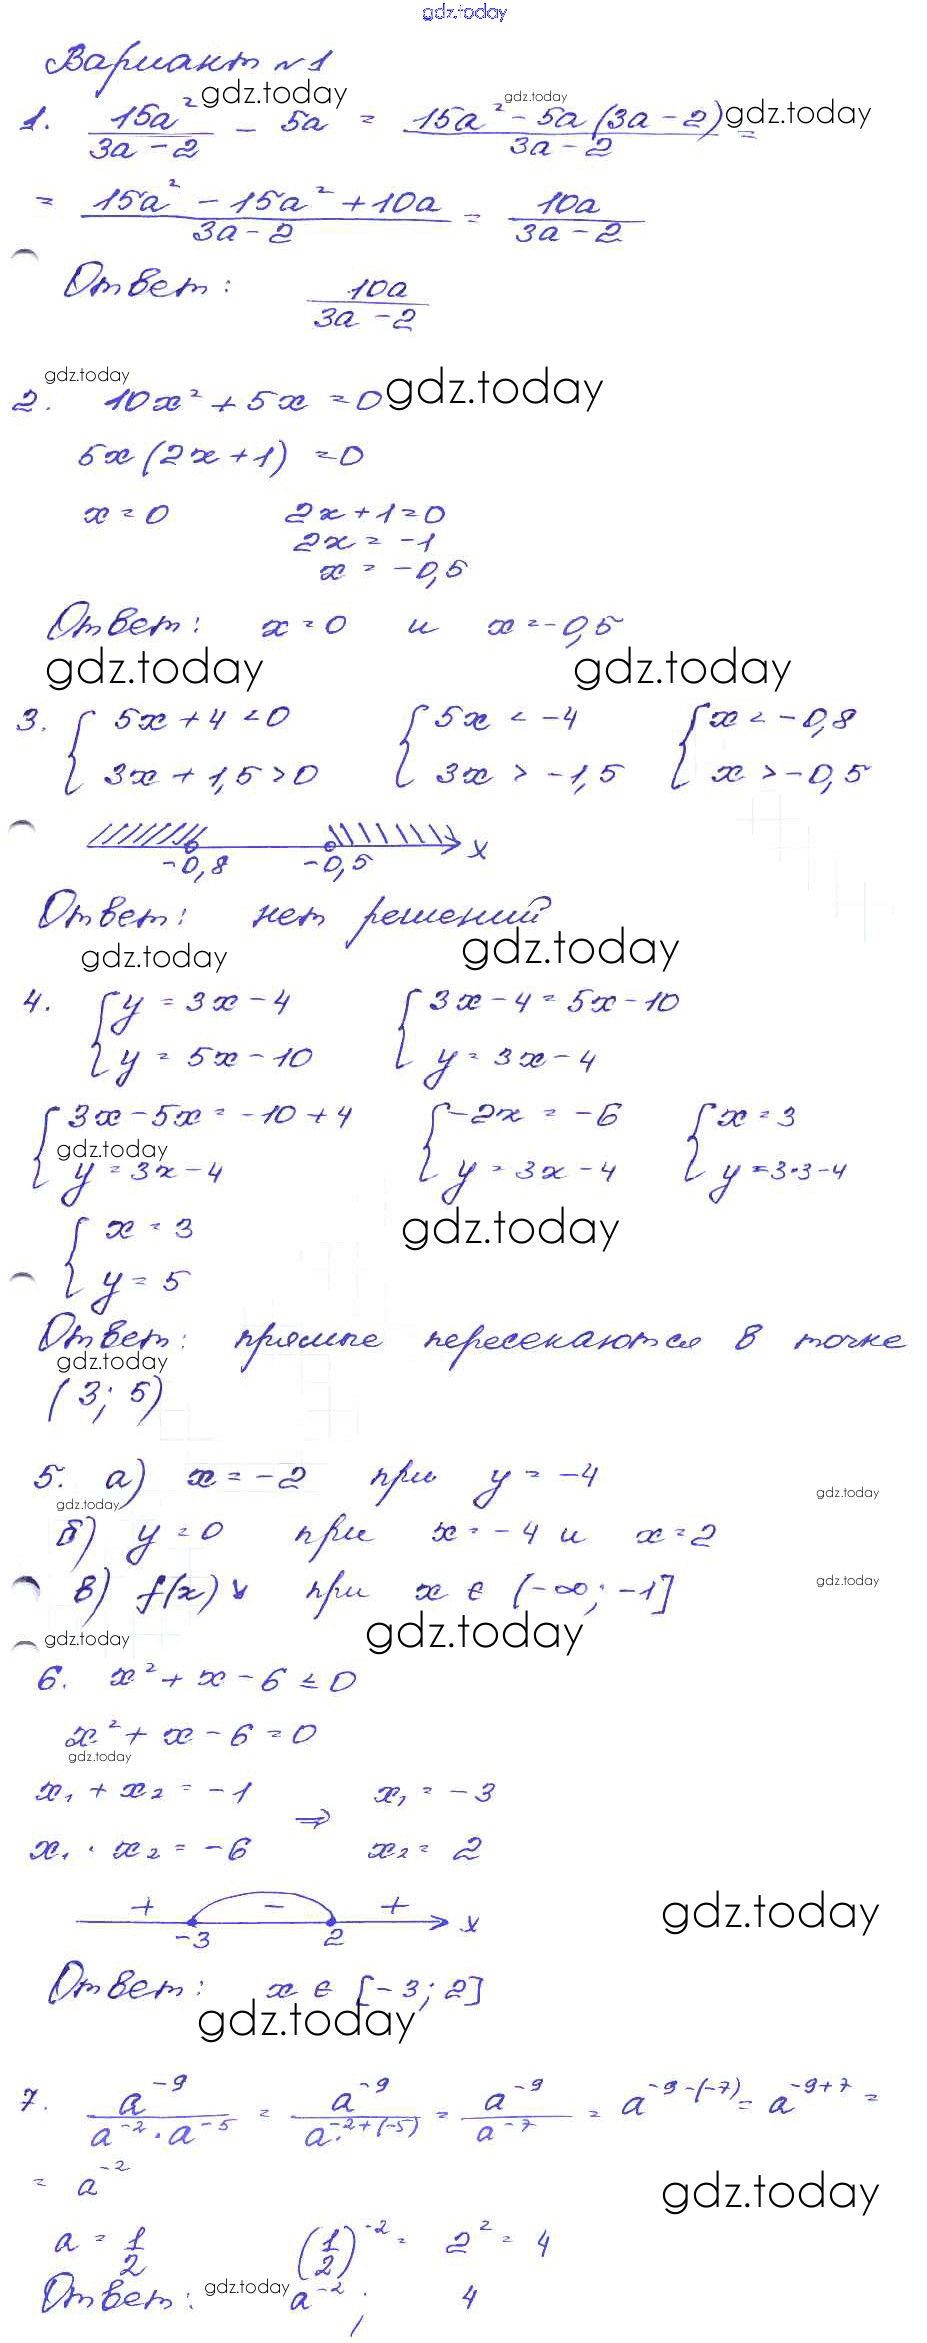 gdz.today
Вариант №1
gdz.today gdz.today gdz.today
1. 15a²/(3a-2) - 5a = (15a² - 5a(3a-2))/(3a-2) =
= (15a² - 15a² + 10a)/(3a-2) = 10a/(3a-2)
Ответ: 10a/(3a-2)
gdz.today gdz.today
2. 10x² + 5x = 0
5x(2x+1) = 0
x = 0 2x+1=0
2x = -1
x = -0,5
Ответ: x=0 и x=-0,5
gdz.today gdz.today
3. { 5x+4<0 { 5x < -4 { x < -0,8
{ 3x+1,5>0 { 3x > -1,5 { x > -0,5
-0,8 -0,5 x
Ответ: нет решений
gdz.today gdz.today
4. { y = 3x-4 { 3x-4=5x-10
{ y = 5x-10 { y = 3x-4
{ 3x-5x=-10+4 { -2x = -6 { x = 3
gdz.today
{ y = 3x-4 { y = 3x-4 { y =3·3-4
{ x = 3 gdz.today
{ y = 5
Ответ: прямые пересекаются в точке
gdz.today
(3; 5)
5. а) x = -2 при y = -4
gdz.today gdz.today
б) y = 0 при x = -4 и x=2
в) f(x)↘ при x ∈ (-∞; -1]
gdz.today
gdz.today gdz.today
6. x² + x - 6 ≤ 0
x² + x - 6 = 0
gdz.today
x₁ + x₂ = -1 x₁ = -3
⇒
x₁ · x₂ = -6 x₂ = 2
+ - + gdz.today
-3 2 x
Ответ: x ∈ [-3; 2]
gdz.today
7. a⁻⁹/(a⁻²·a⁻⁵) = a⁻⁹/a⁻²⁺⁽⁻⁵⁾ = a⁻⁹/a⁻⁷ = a⁻⁹⁻⁽⁻⁷⁾ = a⁻⁹⁺⁷ =
= a⁻² gdz.today
a = 1/2 (1/2)⁻² = 2² = 4
Ответ: gdz.today a⁻² ; 4